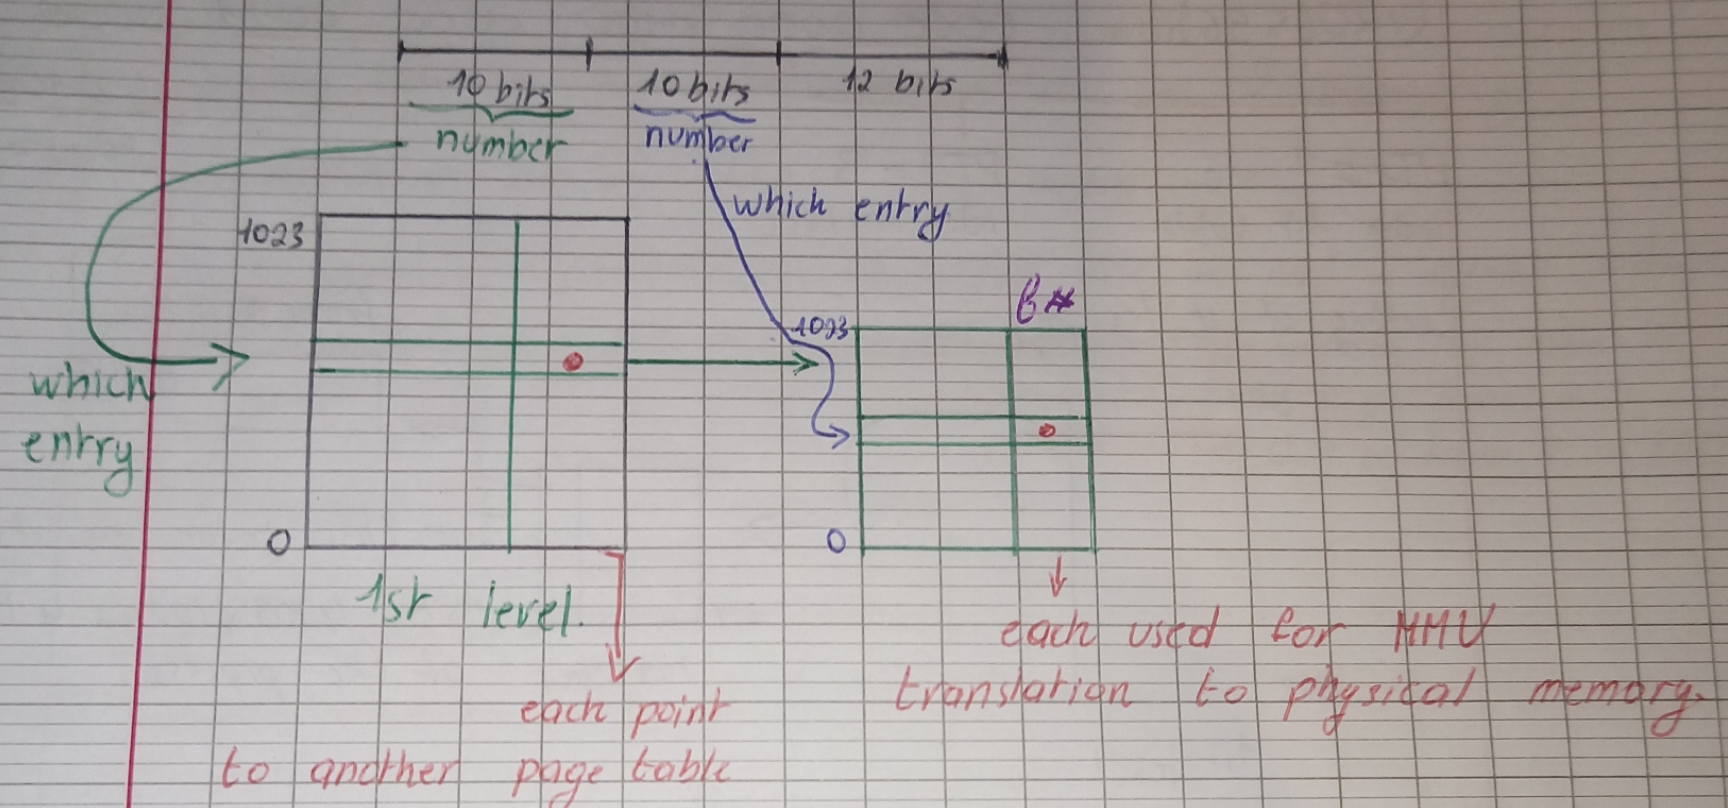 10 bits 10 bits 12 bits
number number
which entry
1023
which
entry
1023
0
0
1st level.
each point
to another page table
each used for MMU
translation to physical memory.